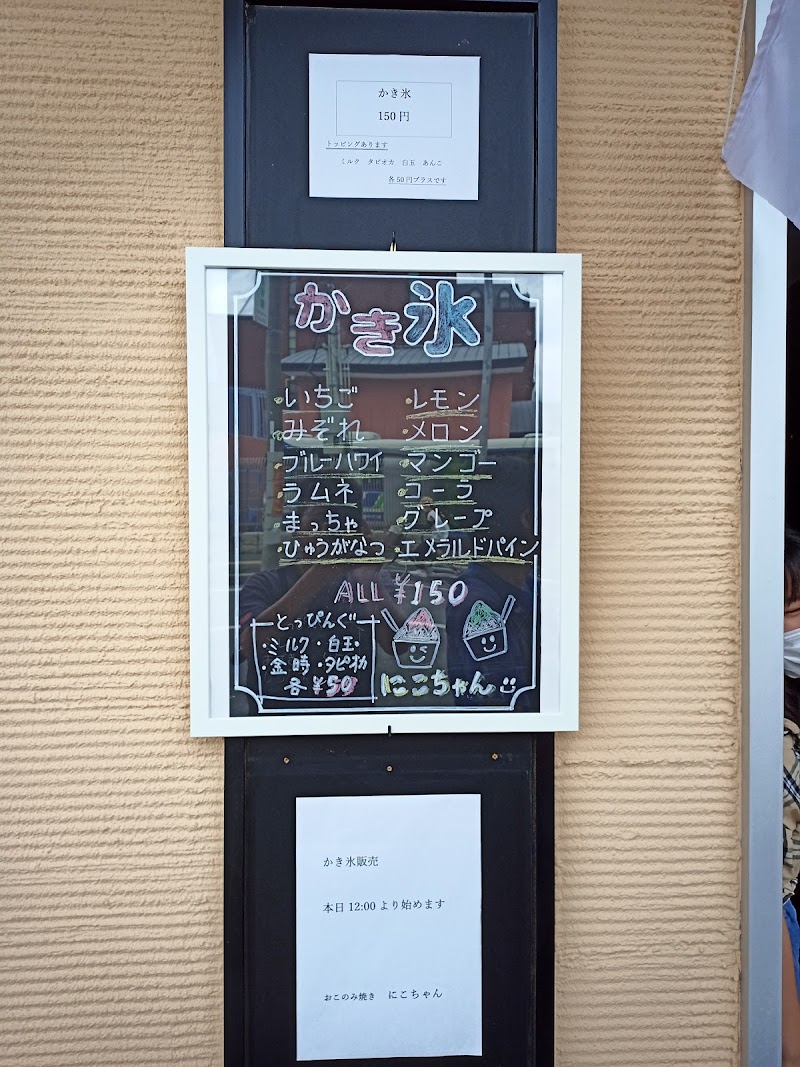 かき氷
150円
トッピングあります
ミルク タピオカ 白玉 あんこ
各50円プラスです
かき氷
・いちご ・レモン
・みぞれ ・メロン
・ブルーハワイ ・マンゴー
・ラムネ ・コーラ
・まっちゃ ・グレープ
・ひゅうがなつ ・エメラルドパイン
ALL ¥150
とっぴんぐ
・ミルク・白玉・
・金時・タピオカ
各¥50
にこちゃん
かき氷販売
本日12:00より始めます
おこのみ焼き にこちゃん